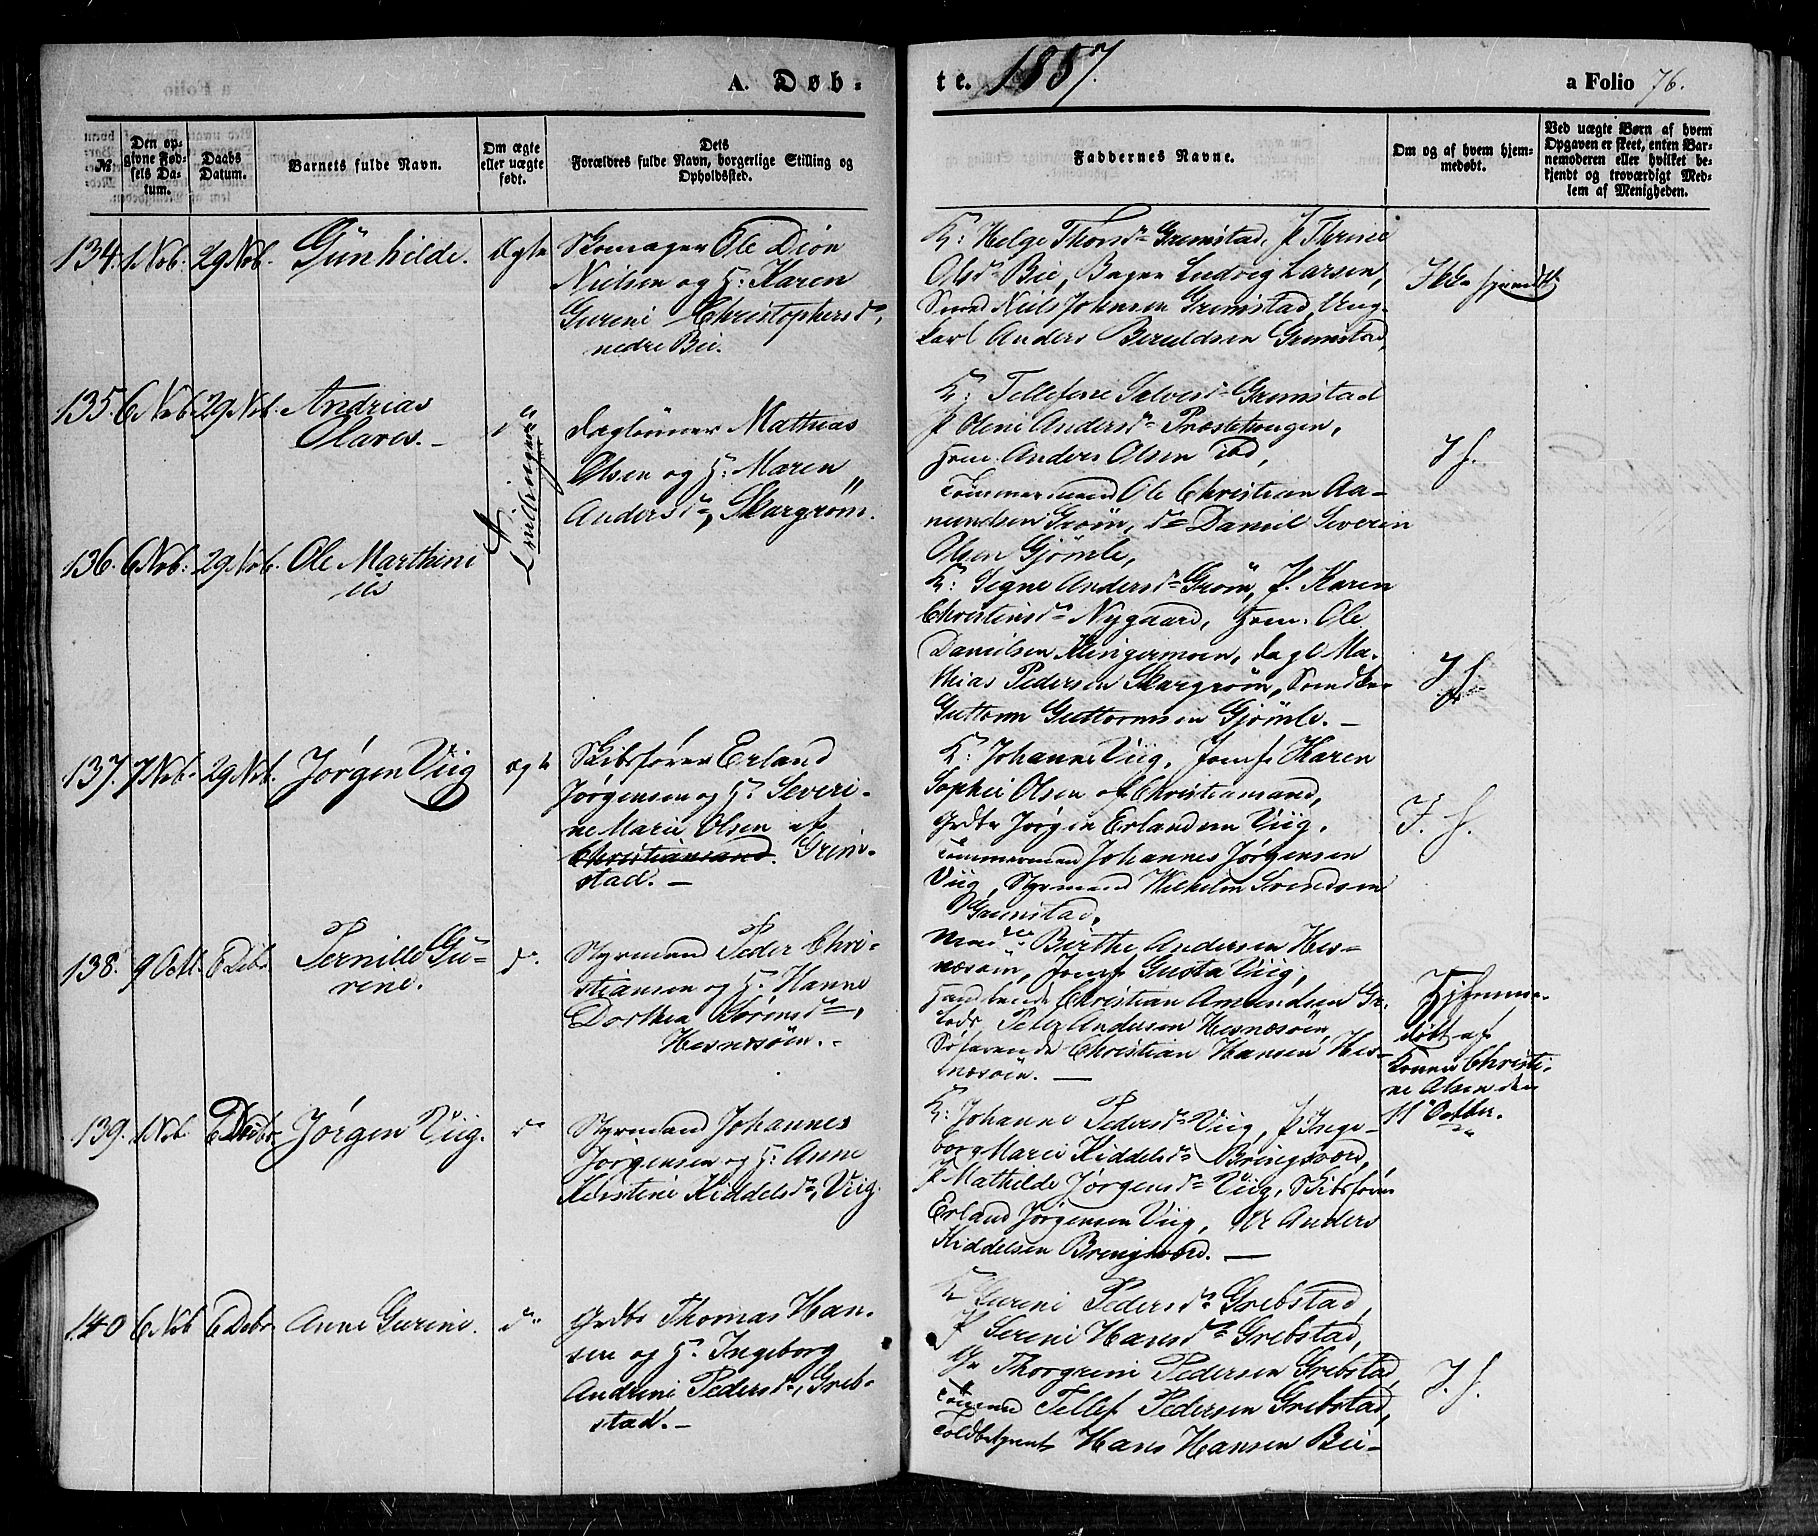 A. Døb-
te. 1857.
a Folio 76.
№
Den op-
givne Fød-
sels Da-
tum.
Daabs
Datum.
Barnets fulde Navn.
Om ægte
eller uægte
født.
Dets
Forældres fulde Navn, borgerlige Stilling og
Opholdssted.
Faddernes Navne.
Om og af hvem hjem-
medøbt.
Ved uægte Børn af hvem
Opgaven er skeet, enten Bar-
nemoderen eller hvilket be-
kjendt og troværdigt Med-
lem af Menigheden.
134. 1 Nob. 29 Nob. Gunhilde. Ægte
Skomager Ole Dion
Nielsen og H: Karen
Gurine Christophersd,
nedre Bie.
K: Helge Thorsd Grimstad, P Therese
Olsd Bie, Bager Ludvig Larsen,
Smed Niels Johnsen Grimstad, Ung-
karl Anders Beruldsen Grimstad,
Ikke hjemdt
135. 6 Nob 29 Nob. Andreas
Olaves. -
Tvillinger
Dagleinner Mathias
Olsen og H: Maren
Andersd, Skargrøm.
K: Tellefine Salvesd Grimstad
P Oleni Andersd Præstetougen,
Anders Olsen Ibd,
Tømmermand Ole Christian Aa-
nundsen Grøm, D Daniel Severin
Olsen Gjømle,
I H.
136. 6 Nob: 29 Nob. Ole Marthini
us
K: Signe Andersd Grøm, P. Karen
Christensd Nygaard, Ole
Danielsen Klingermoen, dagl Ma-
thias Pedersen Skargrøm,
Guttorm Guttormsen Gjømle. -
I H.
137. 7 Nob. 29 Nob. Jørgen Viig ægte
Skibsfører Erland
Jørgensen og H: Severi-
ne Marie Olsen af
Christiansand. Grim-
stad. -
K: Johanne Viig, Jomf. Karen
Sophie Olsen af Christiansand,
Grdbr Jørgen Erlandsen Viig,
Tømmermand Johannes Jørgensen
Viig, Styrmand Wilhelm Svendsen
Grimstad,
I. H.
138. 9 Octb. 6 Debr. Pernille Gu-
rine. do
Styrmand Peder Chri-
stiansen og H: Hanne
Dorthea Sørensd,
Hesnesøen. -
Birthe Andersen Hes-
næsøen, Jomf Gusta Viig,
Christian Amundsen Gr.
Peter Andersen Hesnesøen,
Søfarende Christian Hansen Hes-
næsøen. -
Hjemme-
døbt af
Konen Christi-
ne Olsen den
11te Octbr.
139. 1 Nob. 6 Debr. Jørgen Viig. do
Styrmand Johannes
Jørgensen og H: Anne
Kirstine Kiddelsd, Viig.
K: Johanne Pedersd Viig, P Inge-
borg Marie Kiddelsd Bringsværd,
P Mathilde Jørgensd Viig, Skibsfører
Erland Jørgensen Viig, Anders
Kiddelsen Bringsværd. -
140 6 Nob 6 Debr. Anne Gurine. do
Grdbr Thomas Han-
sen og H: Ingeborg
Andrine Pedersd, Greb-
stad. -
K Gurine Pedersd Grebstad,
P Serine Hansd Grebstad,
Thorgrim Pedersen Grebstad,
Tellef Pedersen Grebstad,
Toldbetjent Hans Hansen Bie-
I. H.